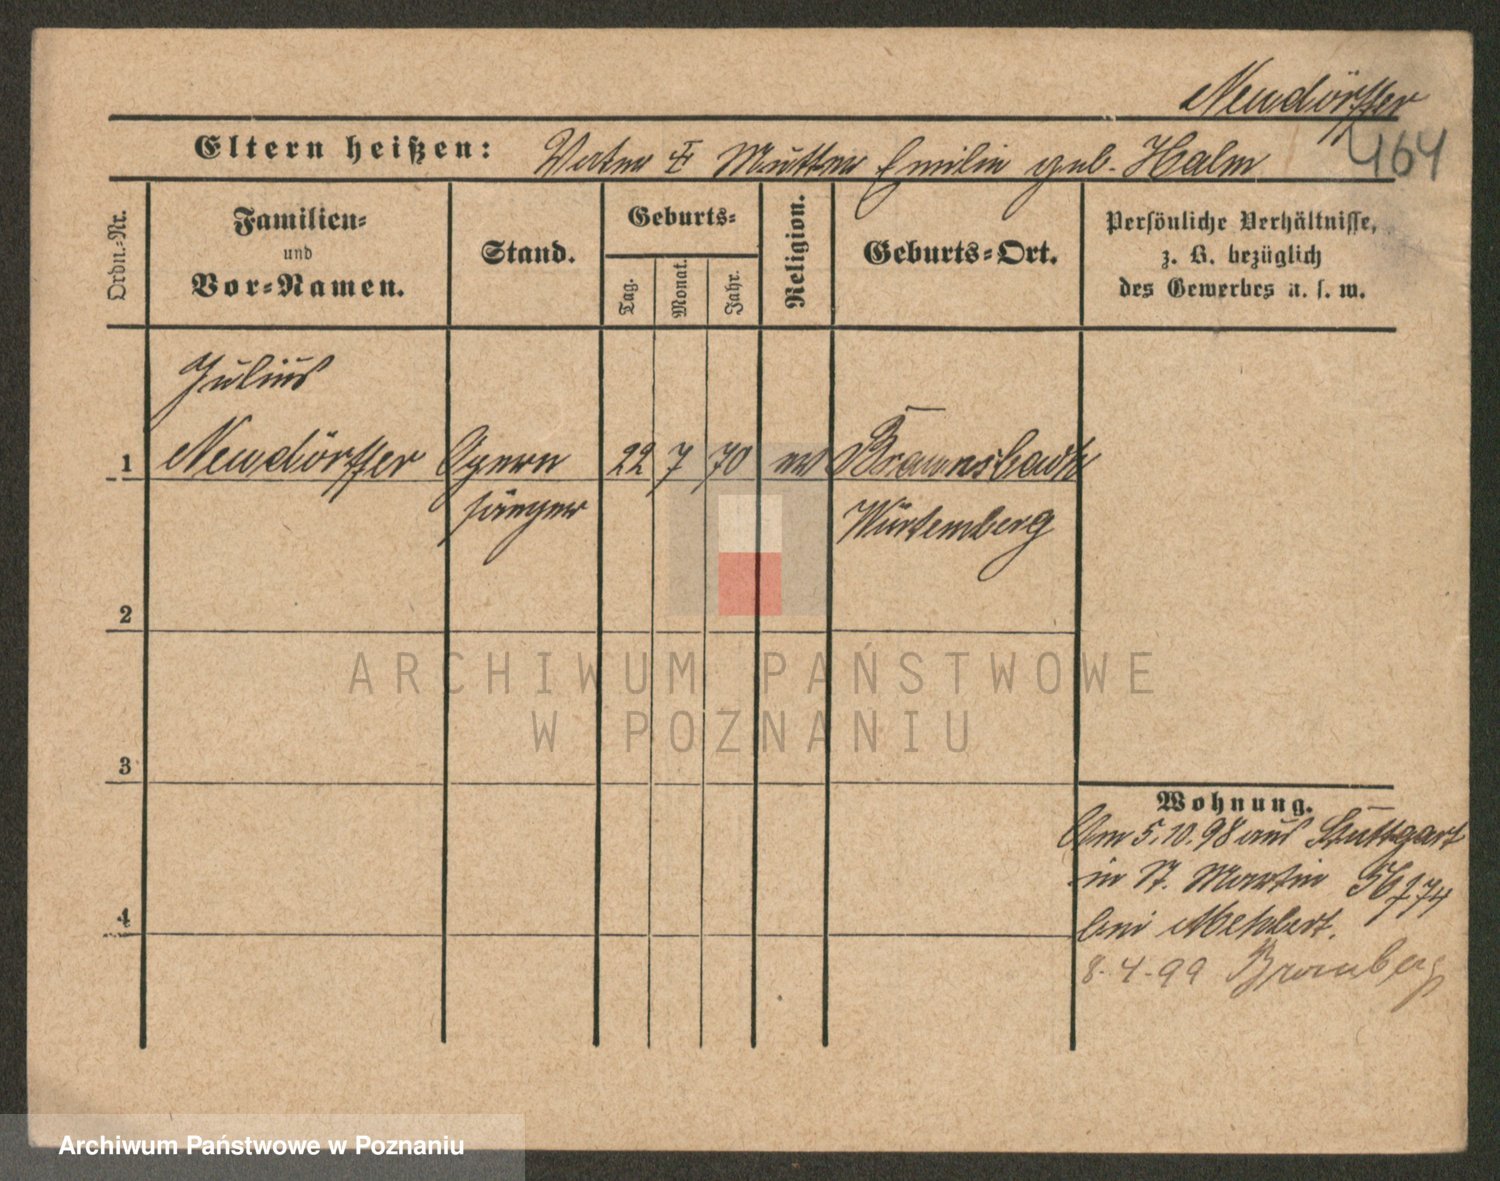 Neudörffer
464
Eltern heißen: Vater † Mutter Emilie geb. Halm
Ordn.-Nr.
Familien-
und
Vor-Namen.
Stand.
Geburts-
Tag.
Monat.
Jahr.
Religion.
Geburts-Ort.
Persönliche Verhältnisse,
z. B. bezüglich
des Gewerbes u. s. w.
Julius
1 Neudörffer Opern 22 7 70 ev
sänger Würtemberg
2
3
4
Wohnung.
Am 5.10.98 aus Stuttgart
in St. Martin 56
bei
8-4-99 Bromberg
ARCHIWUM PAŃSTWOWE
W POZNANIU
Archiwum Państwowe w Poznaniu